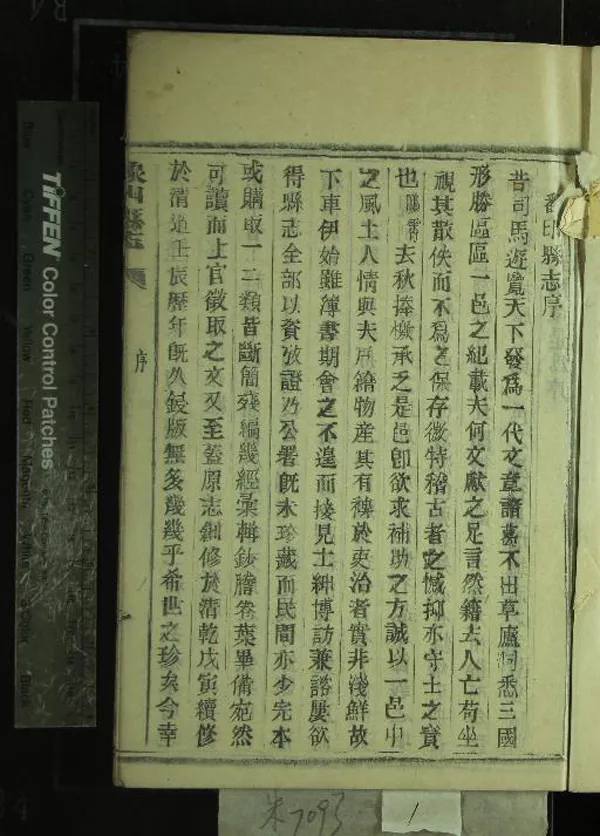 重印縣志序
昔司馬遊覽天下發爲一代文章諸葛不出草廬周悉三國
形勝區區一邑之紀載夫何文獻之足言然籍去人亡苟坐
視其散佚而不爲之保存微特稽古者之憾抑亦守土之責
也 去秋捧檄承乏是邑卽欲求補助之方誠以一邑中
之風土人情與夫所繪物産其有裨於吏治者實非淺鮮故
下車伊始雖簿書期會之不遑而接見士紳博訪兼諮屢欲
得縣志全部以資攷證乃公署旣未珍藏而民間亦少完本
或購取一二類皆斷簡殘編幾經彙輯鈔謄卷葉畢備宛然
可讀而上官徵取之文又至蓋原志創修於清乾戊寅續修
於清道壬辰歷年旣久鋟版無多幾幾乎希世之珍矣今幸
象山縣志
序
TIFFEN Color Control Patches
Black
朱7093
1